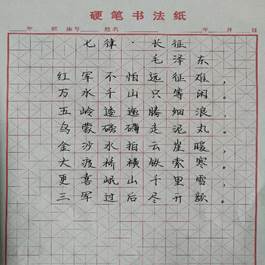 硬笔书法纸
年 班 座号 姓名 年 月 日
七律·长征
毛泽东
红军不怕远征难,
万水千山只等闲。
五岭逶迤腾细浪,
乌蒙磅礴走泥丸。
金沙水拍云崖暖,
大渡桥横铁索寒。
更喜岷山千里雪,
三军过后尽开颜。